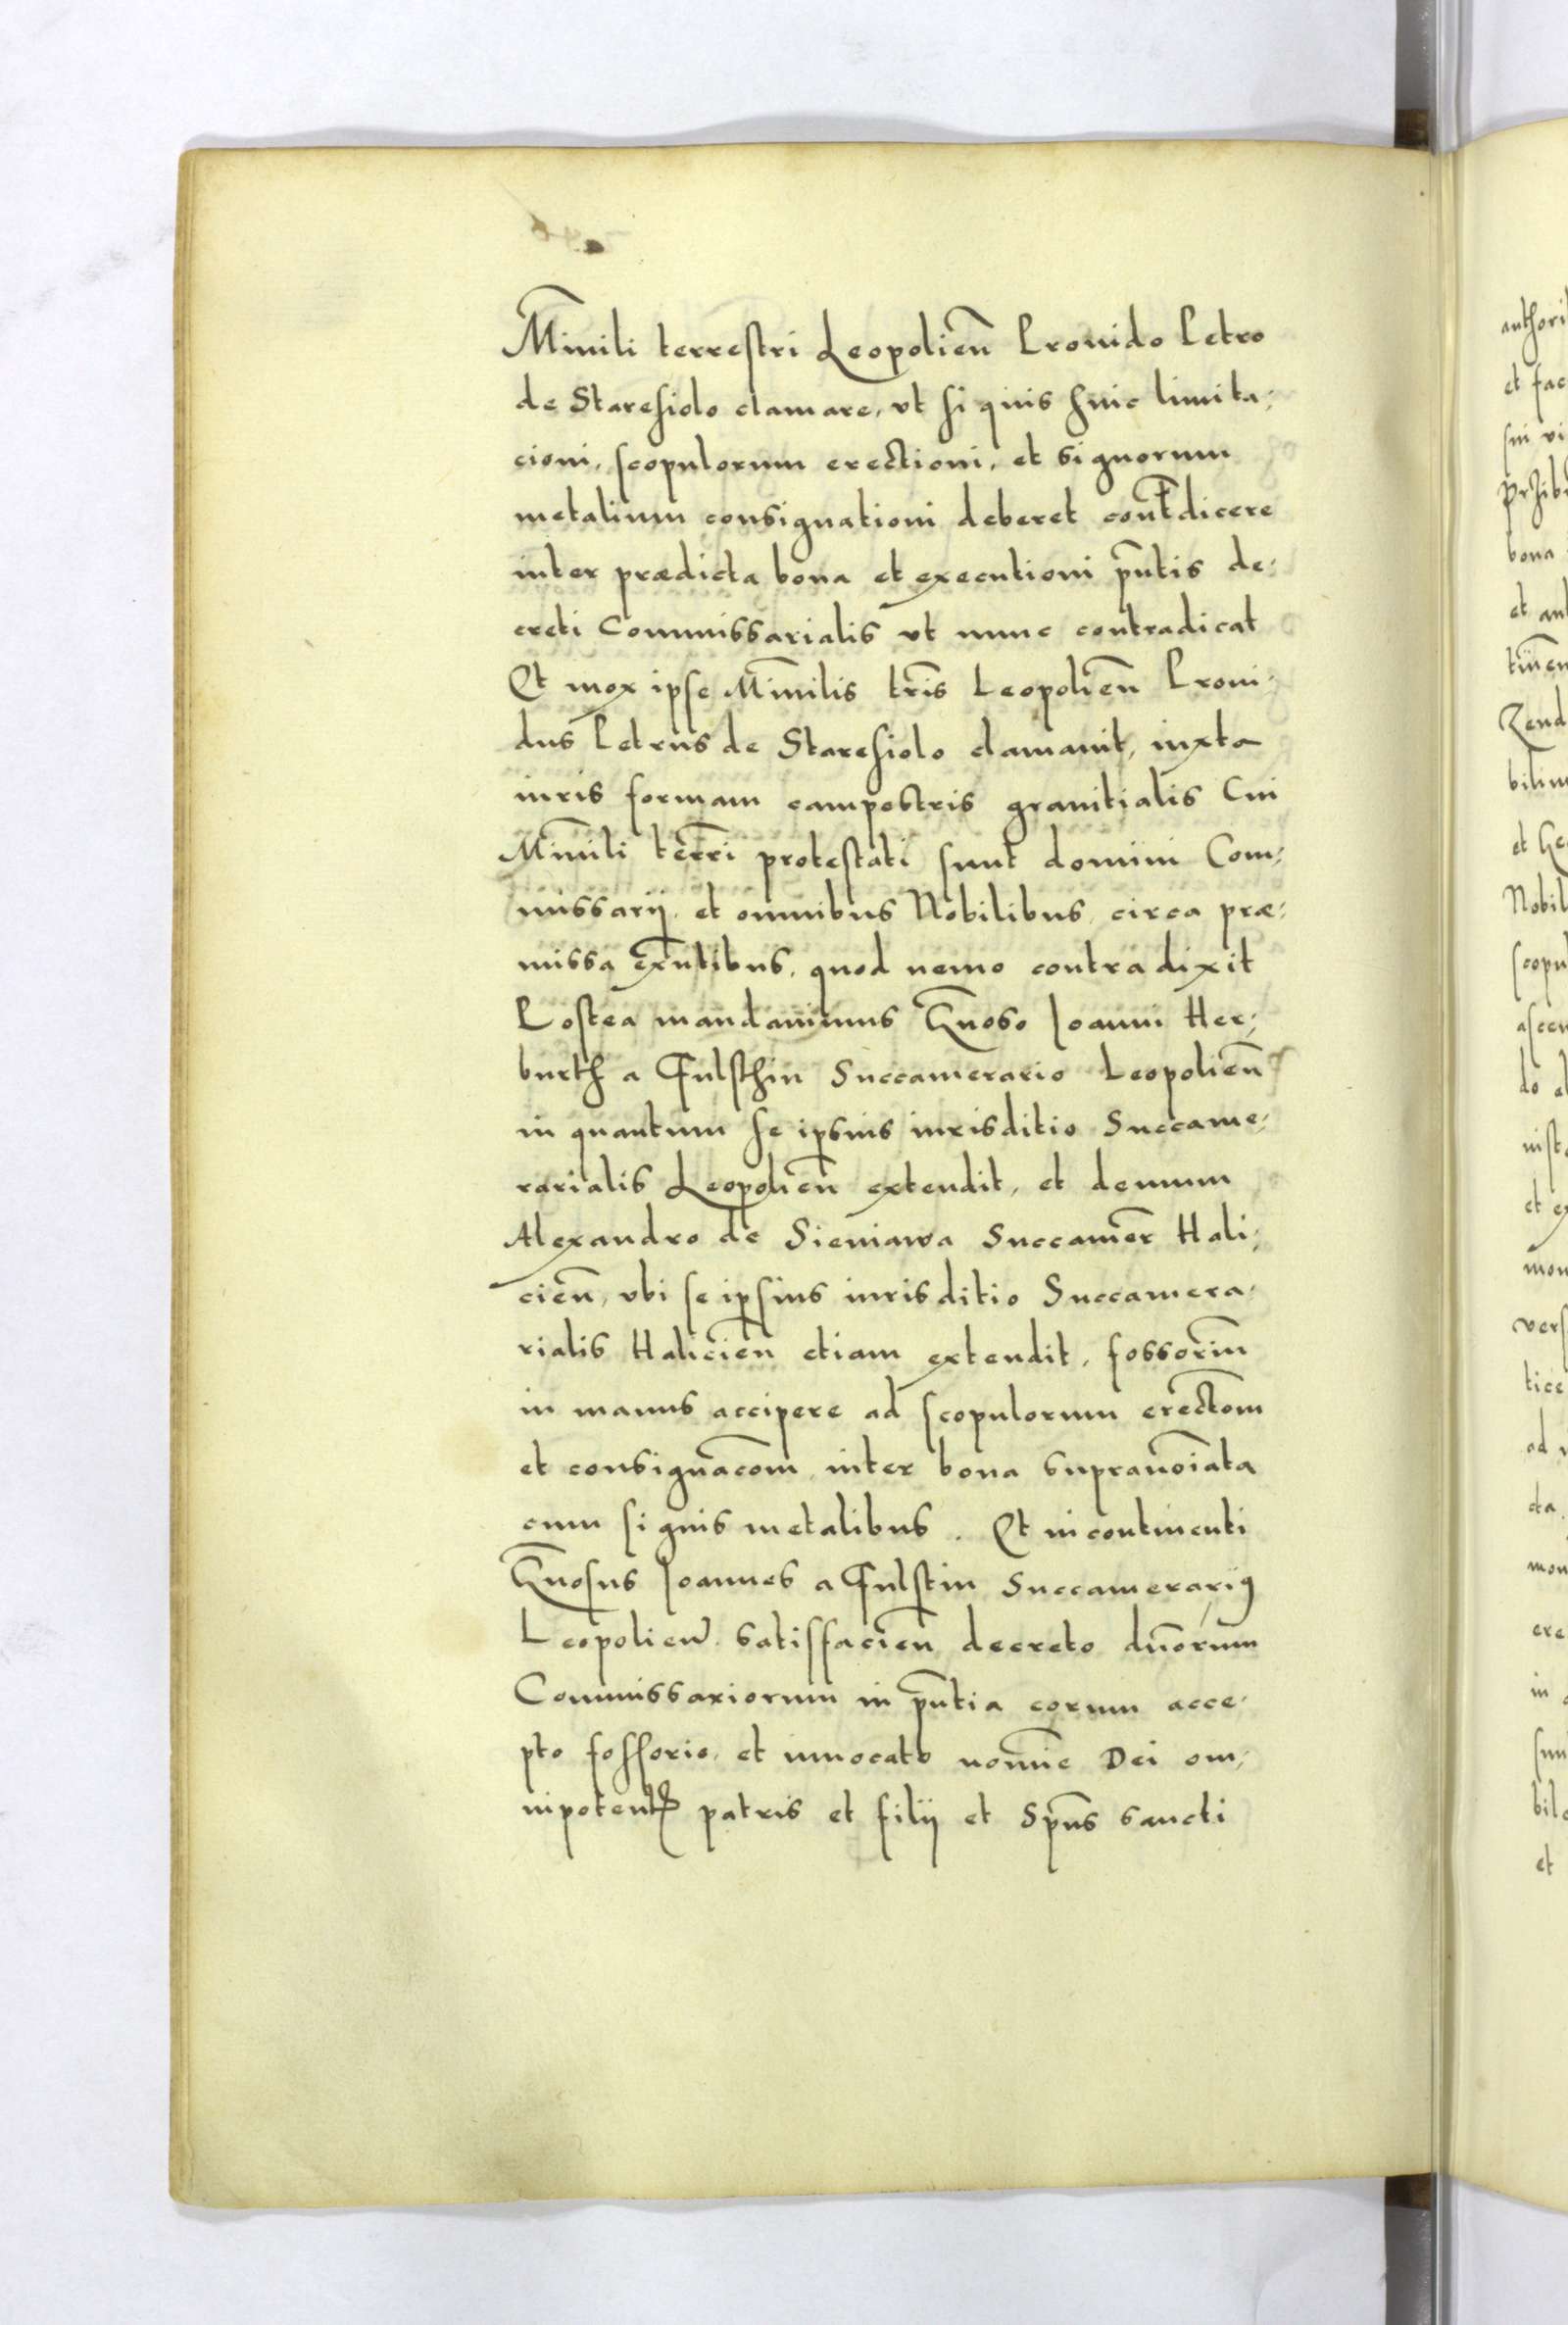 Mīnili terrestri Leopolień Prouido Petro
de Staresiolo clamare, vt si quis huic limita;
cioni, scopulorum erectioni, et signorum
metalium consignationi deberet contdicere
inter prædicta bona et executioni pñtis de;
creti Commissarialis vt nunc contradicat
Et mox ipse Mīnilis trīs Leopolieñ Proui;
dus Petrus de Staresiolo clamauit, iuxta
iuris formam campestris granitialis Cui
Mīnili terrī protestati sunt domini Com;
missarij, et omnibus Nobilibus, circa præ;
missa exñtibus, quod nemo contradixit
Postea mandauimus Gñoso Joanni Her;
burth a Fulsthin Succamerario Leopolieñ
in quantum se ipsius iurisditio Succame;
rarialis Leopolieñ extendit, et demum
Alexandro de Sieniawa Succamer̄ Hali;
cieñ, vbi se ipsius iurisditio Succamera;
rialis Halicieñ etiam extendit, fossoriū
in manus accipere ad scopulorum erectōm
et consignacōm inter bona supranoīata
cum signis metalibus. Et in continenti
Gñosus Joannes a Fulstin Succamerarijꝰ
Leopolień. satisfacieñ decreto dñorum
Commissariorum in pñtia eorum acce;
pto fossorio, et inuocato nomīe Dei om;
nipotentꝭ patris et filij et Spūs sancti
authori
et fac
sui vi
Przib
bona
et
Zend
bilium
et
Nobil
scopu
ascen
do
et
mon
vers
ad
cta
mon
ere
in
et